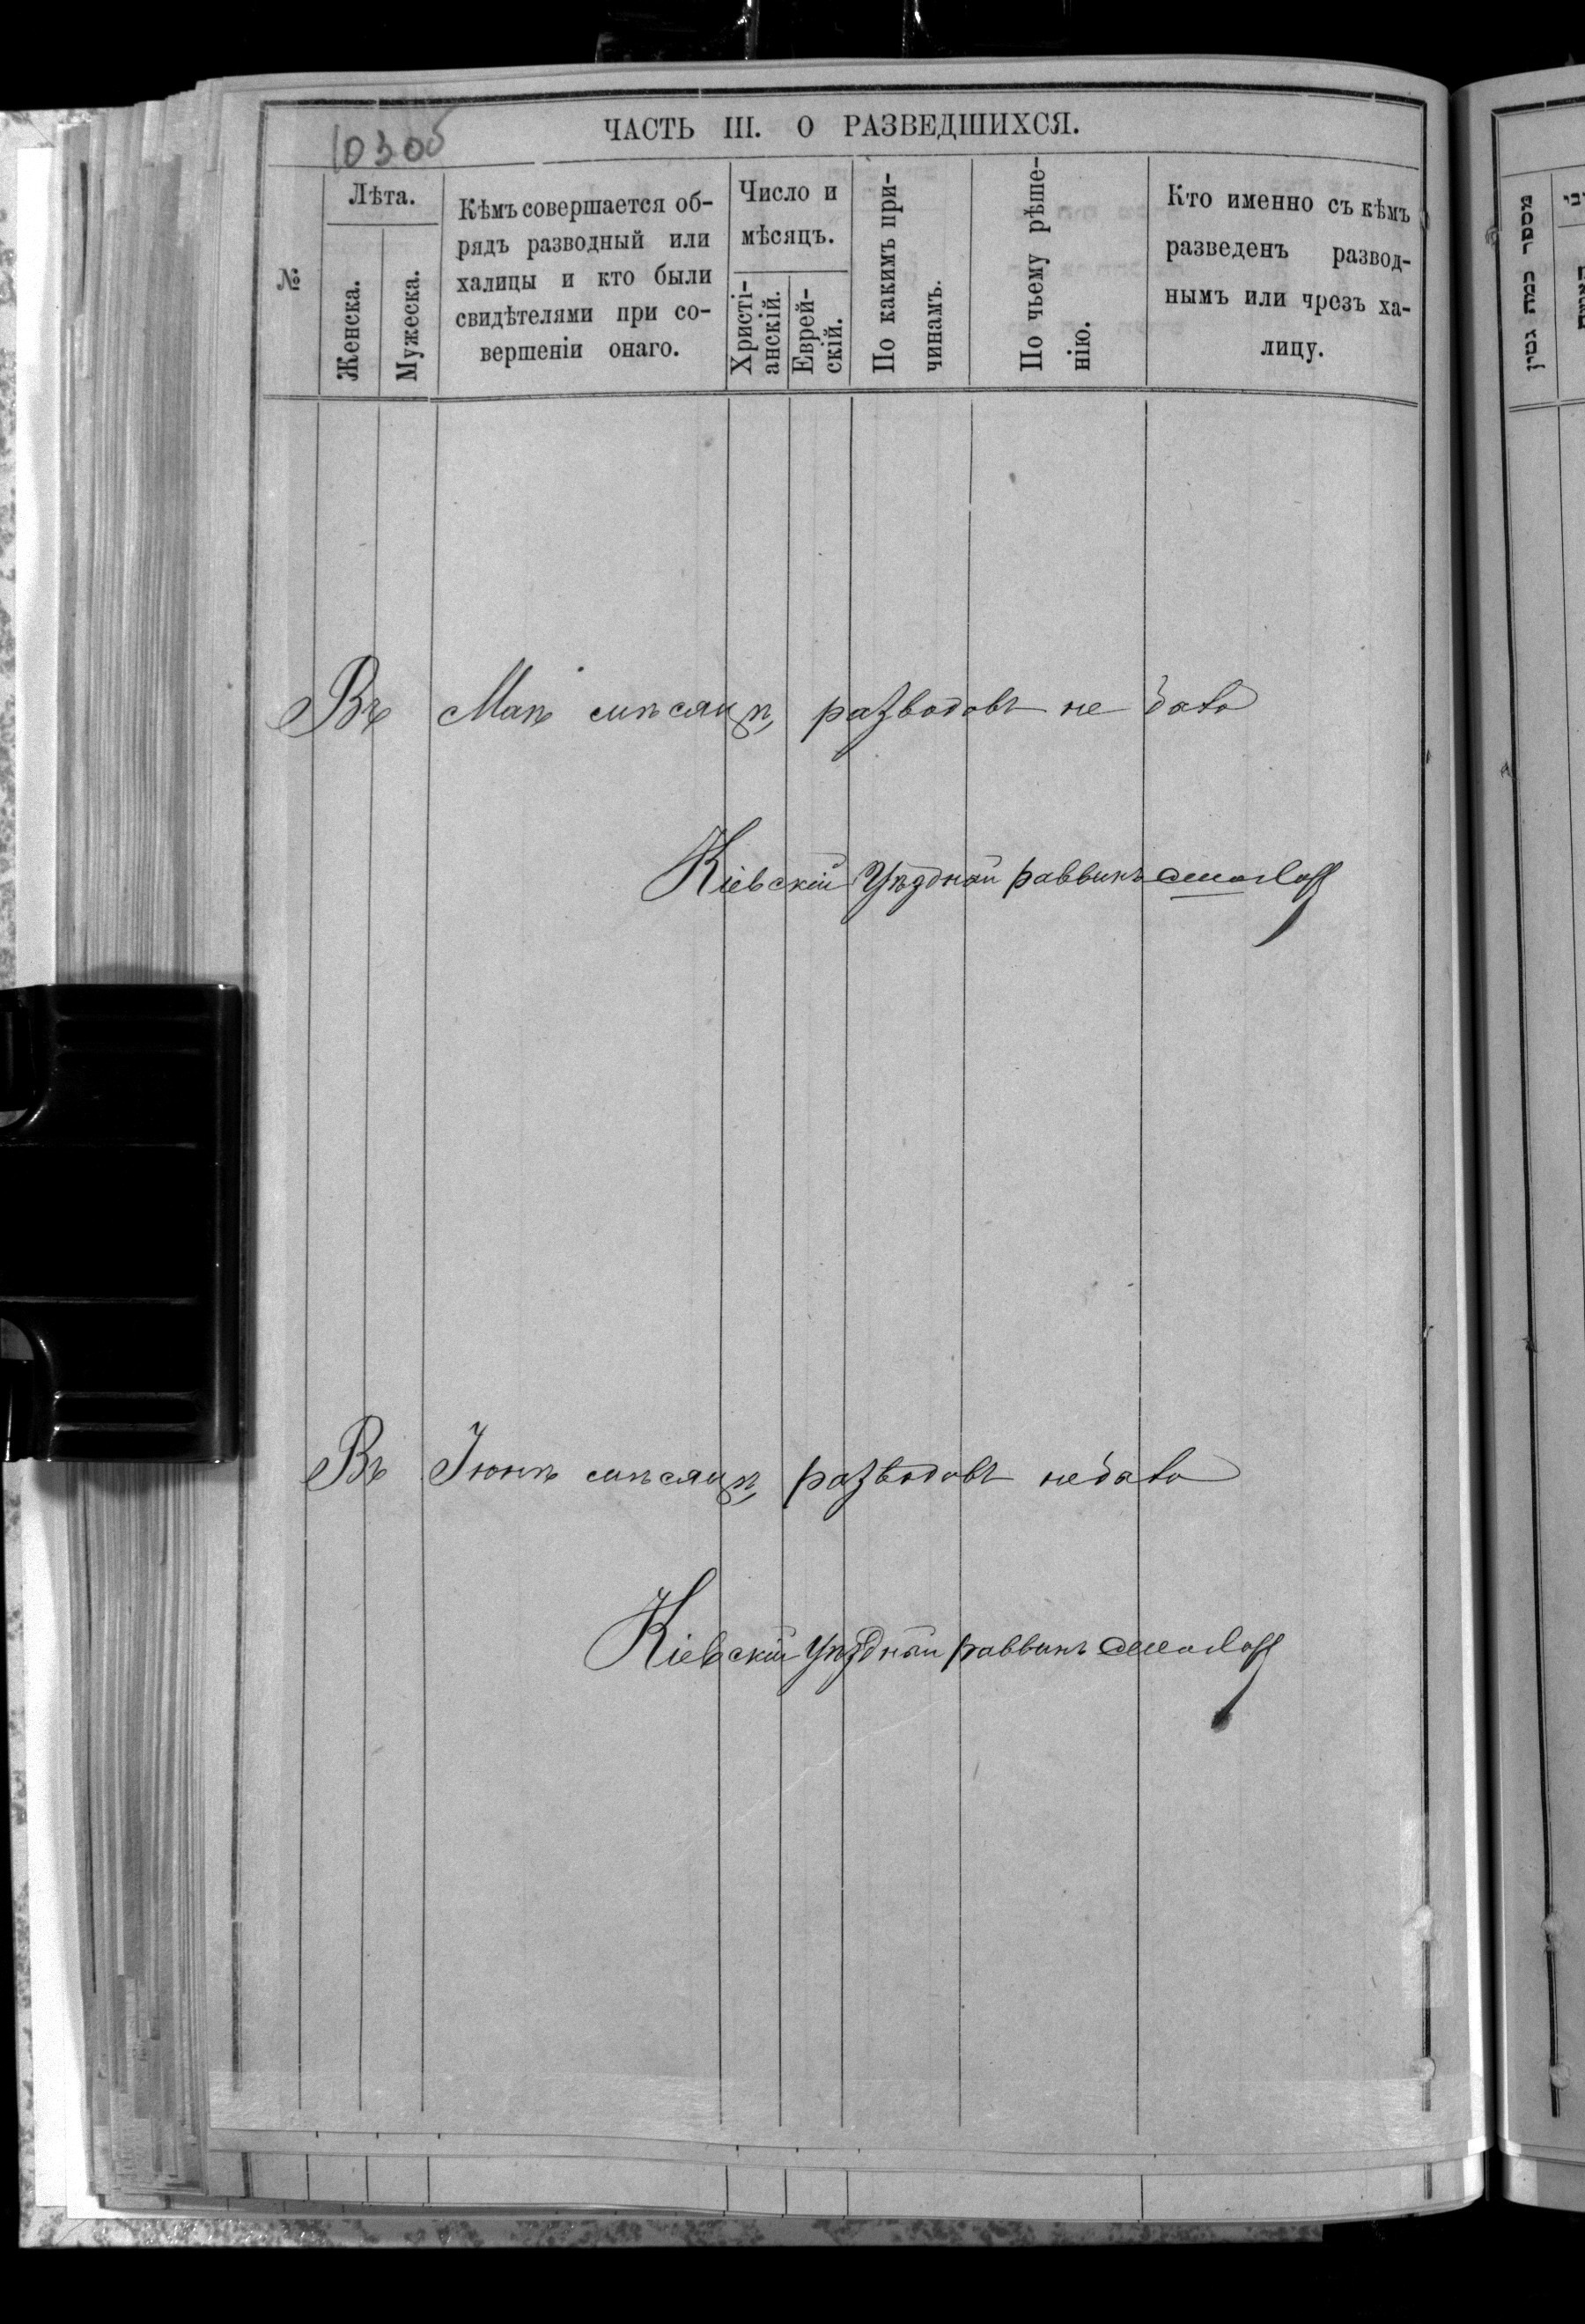 103об
ЧАСТЬ III. О РАЗВЕДШИХСЯ.
№
Лѣта.
Женска.
Мужеска.
Кѣмъ совершается об-
рядъ разводный или
халицы и кто были
свидѣтелями при со-
вершеніи онаго.
Число и
мѣсяцъ.
Христі-
анскій.
Еврей-
скій.
По какимъ при-
чинамъ.
По чьему рѣше-
нію.
Кто именно съ кѣмъ
разведенъ развод-
нымъ или чрезъ ха-
лицу.
מספר כמה גטין
Въ Маѣ мѣсяцѣ разводовъ не было
Кіевскій Уѣздный раввинъ
Въ Іюнѣ мѣсяцѣ разводовъ небыло
Кіевскій Уѣздный раввинъ